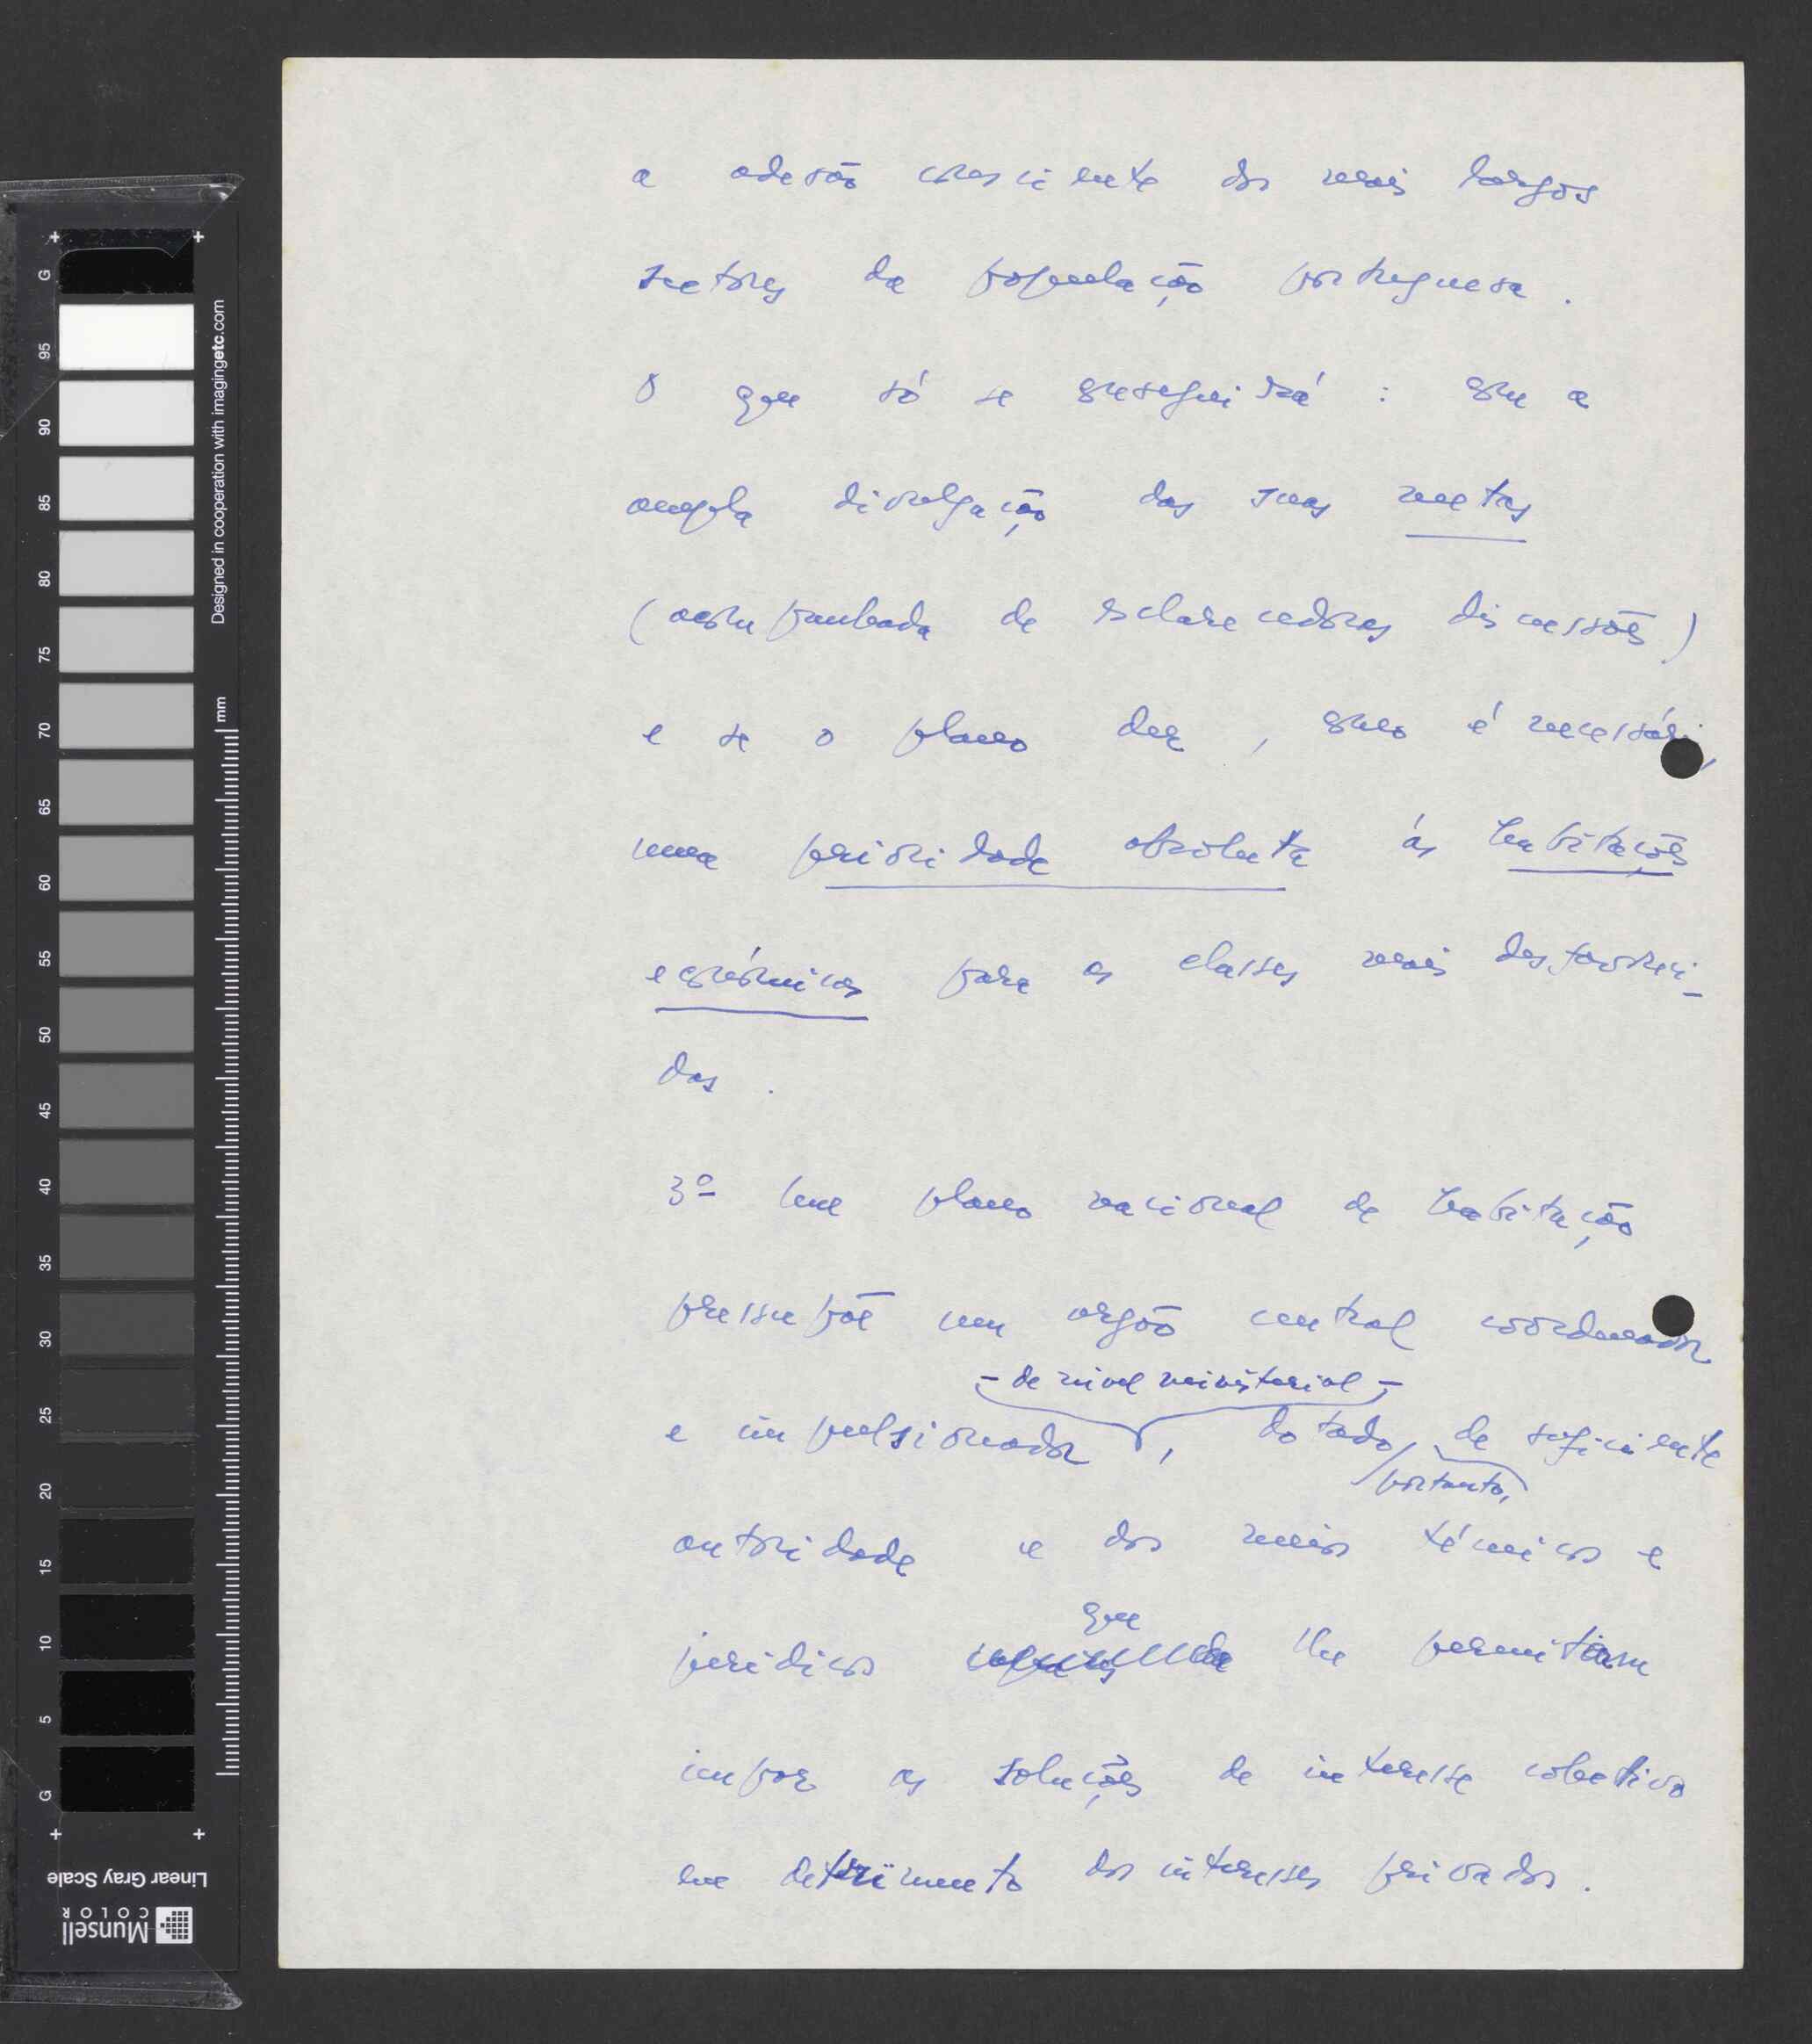 a adesão consciente dos mais largos
sectores da população portuguesa.
O que só se conseguirá: com a
ampla divulgação das suas metas
(acompanhada de esclarecedoras discussões)
e se o plano der, como é necessári,
uma prioridade absoluta às habitações
económicas para as classes mais desfavoreci-
das.
3º Um plano nacional de habitação
pressupõe um orgão central coordenador
- de nível ministerial -
e impulsionador, dotado, de suficiente
portanto,
autoridade e dos meios técnicos e
que
jurídicos lhe permitam
impor as soluções de interesse colectivo
em detrimento dos interesses privados.
G 95 90 85 80 75 70 65 60 55 50 45 40 35 30 25 20 15 10 5 G
Designed in cooperation with imagingetc.com
mm
Linear Gray Scale
Munsell
COLOR